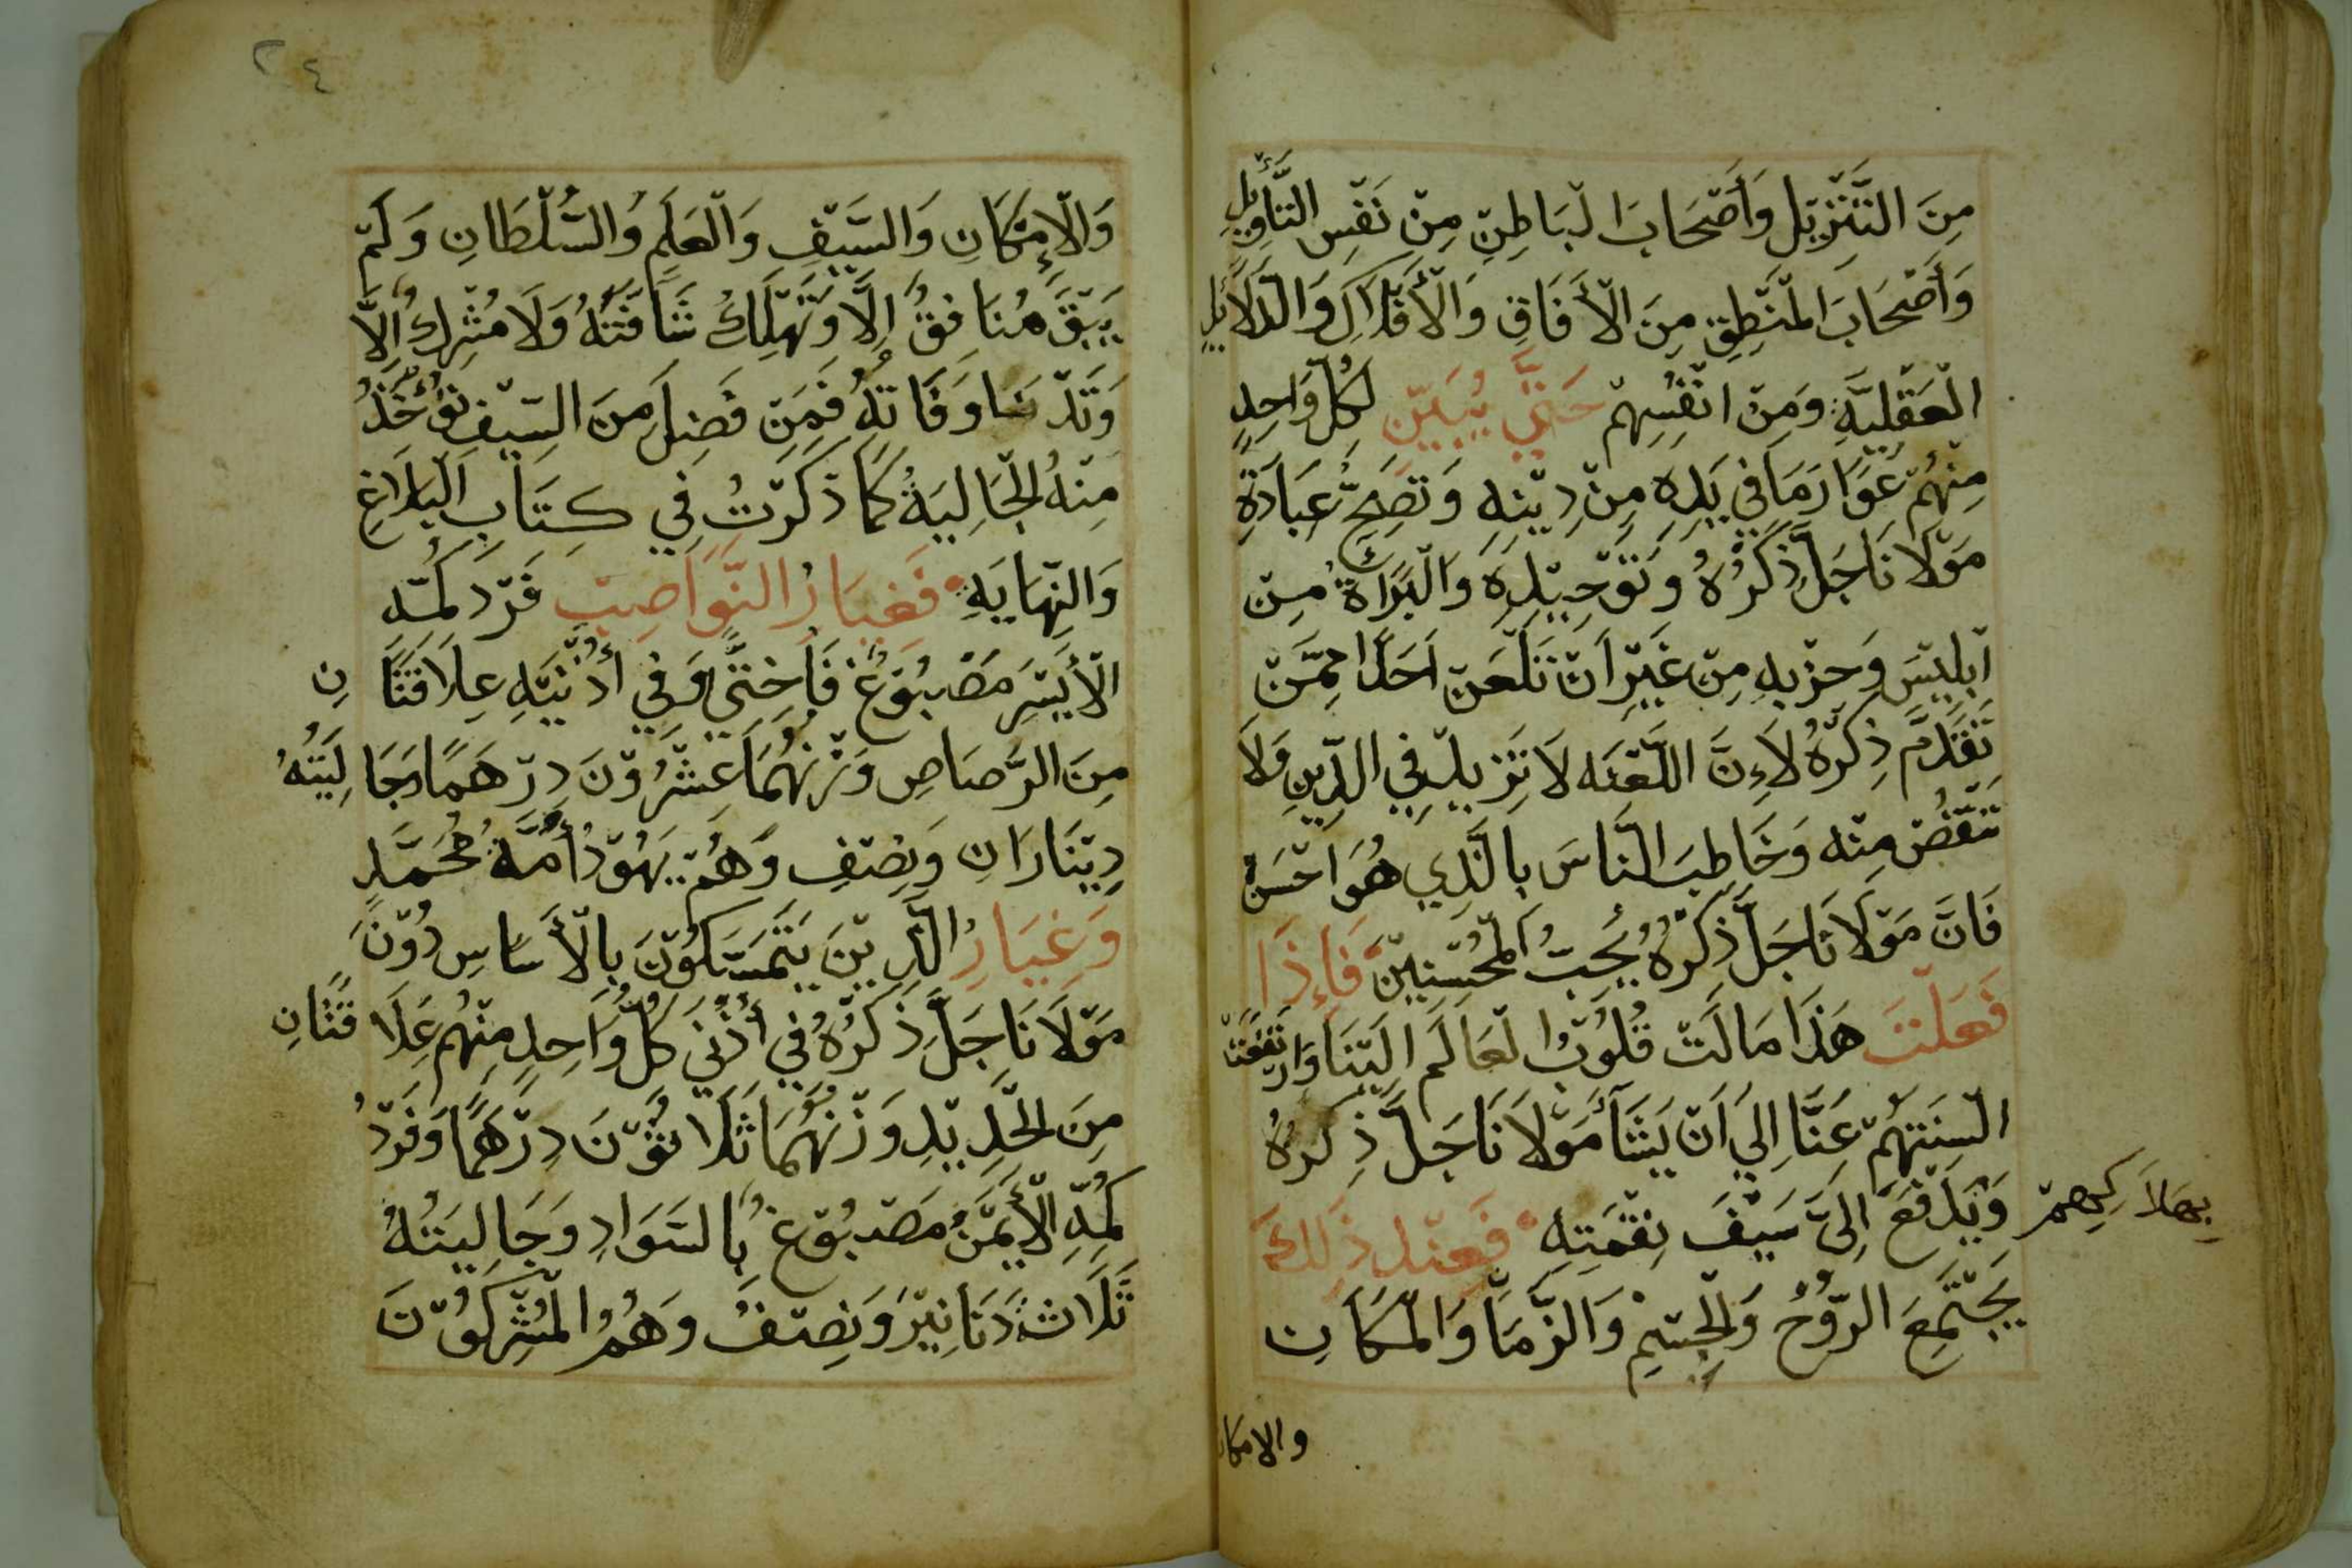 مِنَ التَّنْزِيْل وَأَصْحَابَ الْبَاطِنِ مِنْ نَفْسِ التَّأْوِيْلِ
وَأَصْحَابَ الْمَنْطِقِ مِنَ الْأَفَاقِ وَالْأَفْلَاكِ وَالْدَلَائِلِ
الْعَقْلِيَّةِ وَمِنْ انْفُسِهِمْ حَتَّي يُبَيِّنَ لِكُلِّ وَاحِدٍ
مِنْهُمْ عَوَارَ مَا فِي يَدِهِ مِنْ دِيْنِهِ وَتَصِحَّ عِبَادَةِ
مَوْلَانَا جَلَّ ذِكْرُهُ وَتَوْحِيْدِهِ وَالْبَرَاةُ مِنْ
اِبْلِيْسَ وَحِزْبِهِ مِنْ غَيْرِ اَنْ تَلْعَنْ اَحَدًا مِمَّنْ
تَقَدَّمَ ذِكْرُهُ لَاِنَّ اللَّعْنَه لَا تَزِيْدُ فِي الدِّيْنِ وَلَا
تَنْقُصْ مِنْه وَخَاطِبَ النَّاسَ بِالَّذِي هُوَ احْسَنْ
فَانَّ مَوْلَانَا جَلَّ ذِكْرُهُ يُحِبُّ الْمُحْسِنِيْنَ فَاِذَا
فَعَلْتَ هَذَا مَالَتْ قُلُوْبُ الْعَالَم اِلَيْنَا وَارْتَفَعَتْ
الْسِنَتُهُمْ عَنَّا اِلِيَ اَنْ يَشَأَ مَوْلَانَا جَلَّ ذِكْرُهُ
بِهَلَاكِهِمْ وَيَدْفَعَ اِلَيَّ سَيْفَ نِقْمَتِهِ فَعِنْدَ ذَلِكَ
يَجْتَمِعَ الرُّوْحُ وَالْجِسْمِ وَالزَّمَا وَالْمَكَانِ
والامكان
٢٤
وَالْإِمْكَانِ وَالسَّيْفِ وَالْعَلَمِ وَالسُّلْطَانِ وَلَمْ
يَبْقَ مُنَافِقٌ اِلَّا وَتَهْلِكُ شَافَتَهُ وَلَا مُشْرِكٌ اِلَّا
وَتَدْنَا وَفَاتُهُ فَمَنْ فَضِلَ مِنَ السَّيْفِ تُؤْخَذُ
مِنْهُ الْجَالِيَةُ كَمَا ذَكَرْتُ فِي كِتَابِ الْبَلَاغِ
وَالنِّهَايَةِ فَغِيَارُ النَّوَاصِبْ فَرْدَ كُمِّه
الْأَيْسَرِ مَصْبُوْغٌ فَاخِتِيٌّ وَفِي أُذْنَيْهِ عِلَاقَتَانِ
مِنَ الرَّصَاصِ وَزْنُهُمَا عِشْرُوْنَ دِرْهَمًا وَجَالِيَتُهُ
دِيْنَارَانِ وَنِصْفِ وَهُمْ يَهُوْدُ أُمَّةِ مُحَمَّدٍ
وَغِيَارُ الَّذِيْنَ يَتَمَسَّكُوْنَ بِالْأَسَاسِ دُوْنَ
مَوْلَانَا جَلَّ ذِكْرُهُ فِي أُذْنَيْ كُلِّ وَاحِدٍ مِنْهُم عِلَاقَتَانِ
مِنَ الْحَدِيْدِ وَزْنُهُمَا ثَلَاثُوْنَ دِرْهَمًا وَفَرْدُ
كُمِّهِ الْأَيْمَنُ مَصْبُوْغٌ بِالسَوَادِ وَجَالِيَتُهُ
ثَلَاثَةُ دَنَانِيْرَ وَنِصْفٌ وَهُمُ الْمُشْرِكُوْنَ